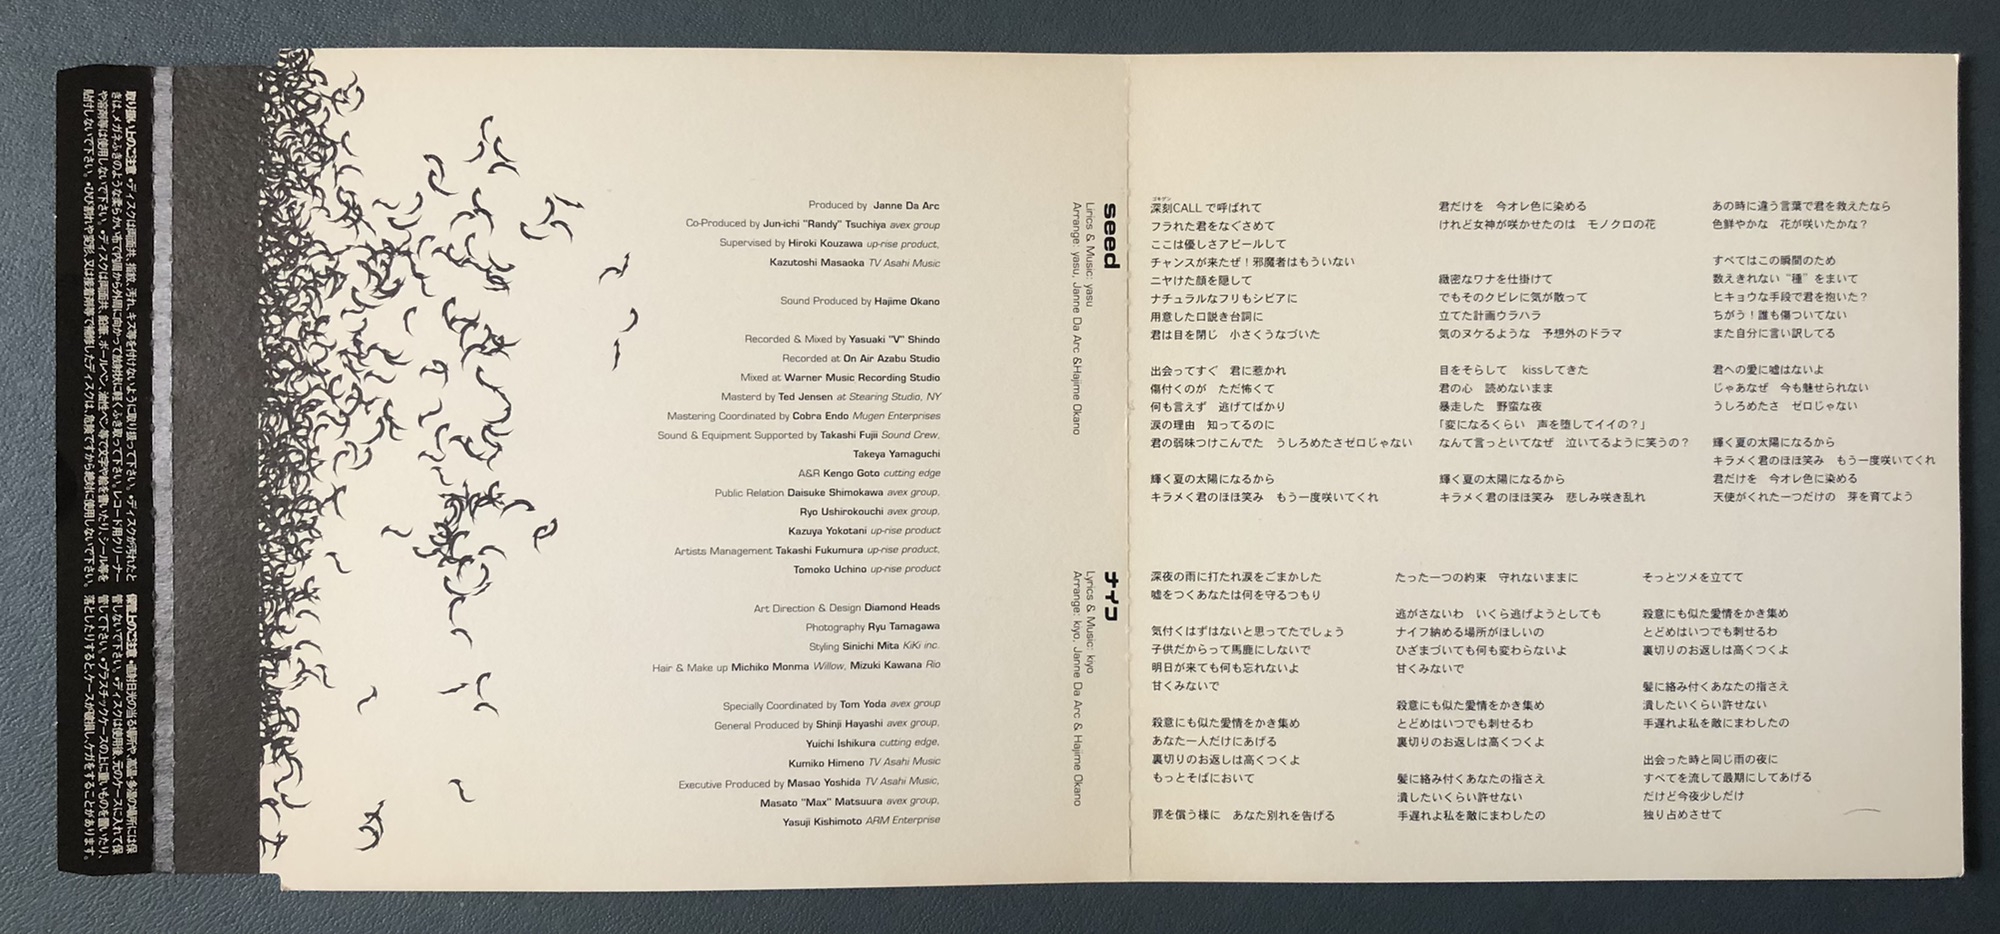 取り扱い上のご注意 •ディスクは両面共、指紋、汚れ、キズ等を付けないように取り扱って下さい。•ディスクが汚れたと
きは、メガネふきのような柔らかい布で内周から外周に向かって放射状に軽くふき取って下さい。レコード用クリーナー
や溶剤等は使用しないで下さい。•ディスクは両面共、鉛筆、ボールペン、油性ペン等で文字や絵を書いたり、シール等を
貼付しないで下さい。•ひび割れや変形、又は接着剤等で補修したディスクは、危険ですから絶対に使用しないで下さい。
保管上のご注意 •直射日光の当る場所や、高温・多湿の場所には保
管しないで下さい。•ディスクは使用後、元のケースに入れて保
管して下さい。•プラスチックケースの上に重いものを置いたり、
落としたりすると、ケースが破損し、ケガをすることがあります。
Produced by Janne Da Arc
Co-Produced by Jun-ichi "Randy" Tsuchiya avex group
Supervised by Hiroki Kouzawa up-rise product,
Kazutoshi Masaoka TV Asahi Music
Sound Produced by Hajime Okano
Recorded & Mixed by Yasuaki "V" Shindo
Recorded at On Air Azabu Studio
Mixed at Warner Music Recording Studio
Masterd by Ted Jensen at Stearing Studio, NY
Mastering Coordinated by Cobra Endo Mugen Enterprises
Sound & Equipment Supported by Takashi Fujii Sound Crew,
Takeya Yamaguchi
A&R Kengo Goto cutting edge
Public Relation Daisuke Shimokawa avex group,
Ryo Ushirokouchi avex group,
Kazuya Yokotani up-rise product
Artists Management Takashi Fukumura up-rise product,
Tomoko Uchino up-rise product
Art Direction & Design Diamond Heads
Photography Ryu Tamagawa
Styling Sinichi Mita KiKi inc.
Hair & Make up Michiko Monma Willow, Mizuki Kawana Rio
Specially Coordinated by Tom Yoda avex group
General Produced by Shinji Hayashi avex group,
Yuichi Ishikura cutting edge,
Kumiko Himeno TV Asahi Music
Executive Produced by Masao Yoshida TV Asahi Music,
Masato "Max" Matsuura avex group,
Yasuji Kishimoto ARM Enterprise
seed
Lirics & Music: yasu
Arrange: yasu, Janne Da Arc &Hajime Okano
ゴキゲン
深刻CALL で呼ばれて
フラれた君をなぐさめて
ここは優しさアピールして
チャンスが来たぜ！邪魔者はもういない
ニヤけた顔を隠して
ナチュラルなフリもシビアに
用意した口説き台詞に
君は目を閉じ　小さくうなづいた
出会ってすぐ　君に惹かれ
傷付くのが　ただ怖くて
何も言えず　逃げてばかり
涙の理由　知ってるのに
君の弱味つけこんでた　うしろめたさゼロじゃない
輝く夏の太陽になるから
キラメく君のほほ笑み　もう一度咲いてくれ
君だけを　今オレ色に染める
けれど女神が咲かせたのは　モノクロの花
緻密なワナを仕掛けて
でもそのクビレに気が散って
立てた計画ウラハラ
気のヌケるような　予想外のドラマ
目をそらして　kissしてきた
君の心　読めないまま
暴走した　野蛮な夜
「変になるくらい　声を堕してイイの？」
なんて言っといてなぜ　泣いてるように笑うの？
輝く夏の太陽になるから
キラメく君のほほ笑み　悲しみ咲き乱れ
あの時に違う言葉で君を救えたなら
色鮮やかな　花が咲いたかな？
すべてはこの瞬間のため
数えきれない “種” をまいて
ヒキョウな手段で君を抱いた？
ちがう！誰も傷ついてない
また自分に言い訳してる
君への愛に嘘はないよ
じゃあなぜ　今も魅せられない
うしろめたさ　ゼロじゃない
輝く夏の太陽になるから
キラメく君のほほ笑み　もう一度咲いてくれ
君だけを　今オレ色に染める
天使がくれた一つだけの　芽を育てよう
ナイフ
Lyrics & Music: kiyo
Arrange: kiyo, Janne Da Arc & Hajime Okano
深夜の雨に打たれ涙をごまかした
嘘をつくあなたは何を守るつもり
気付くはずはないと思ってたでしょう
子供だからって馬鹿にしないで
明日が来ても何も忘れないよ
甘くみないで
殺意にも似た愛情をかき集め
あなた一人だけにあげる
裏切りのお返しは高くつくよ
もっとそばにおいて
罪を償う様に　あなた別れを告げる
たった一つの約束　守れないままに
逃がさないわ　いくら逃げようとしても
ナイフ納める場所がほしいの
ひざまづいても何も変わらないよ
甘くみないで
殺意にも似た愛情をかき集め
とどめはいつでも刺せるわ
裏切りのお返しは高くつくよ
髪に絡み付くあなたの指さえ
潰したいくらい許せない
手遅れよ私を敵にまわしたの
そっとツメを立てて
殺意にも似た愛情をかき集め
とどめはいつでも刺せるわ
裏切りのお返しは高くつくよ
髪に絡み付くあなたの指さえ
潰したいくらい許せない
手遅れよ私を敵にまわしたの
出会った時と同じ雨の夜に
すべてを流して最期にしてあげる
だけど今夜少しだけ
独り占めさせて